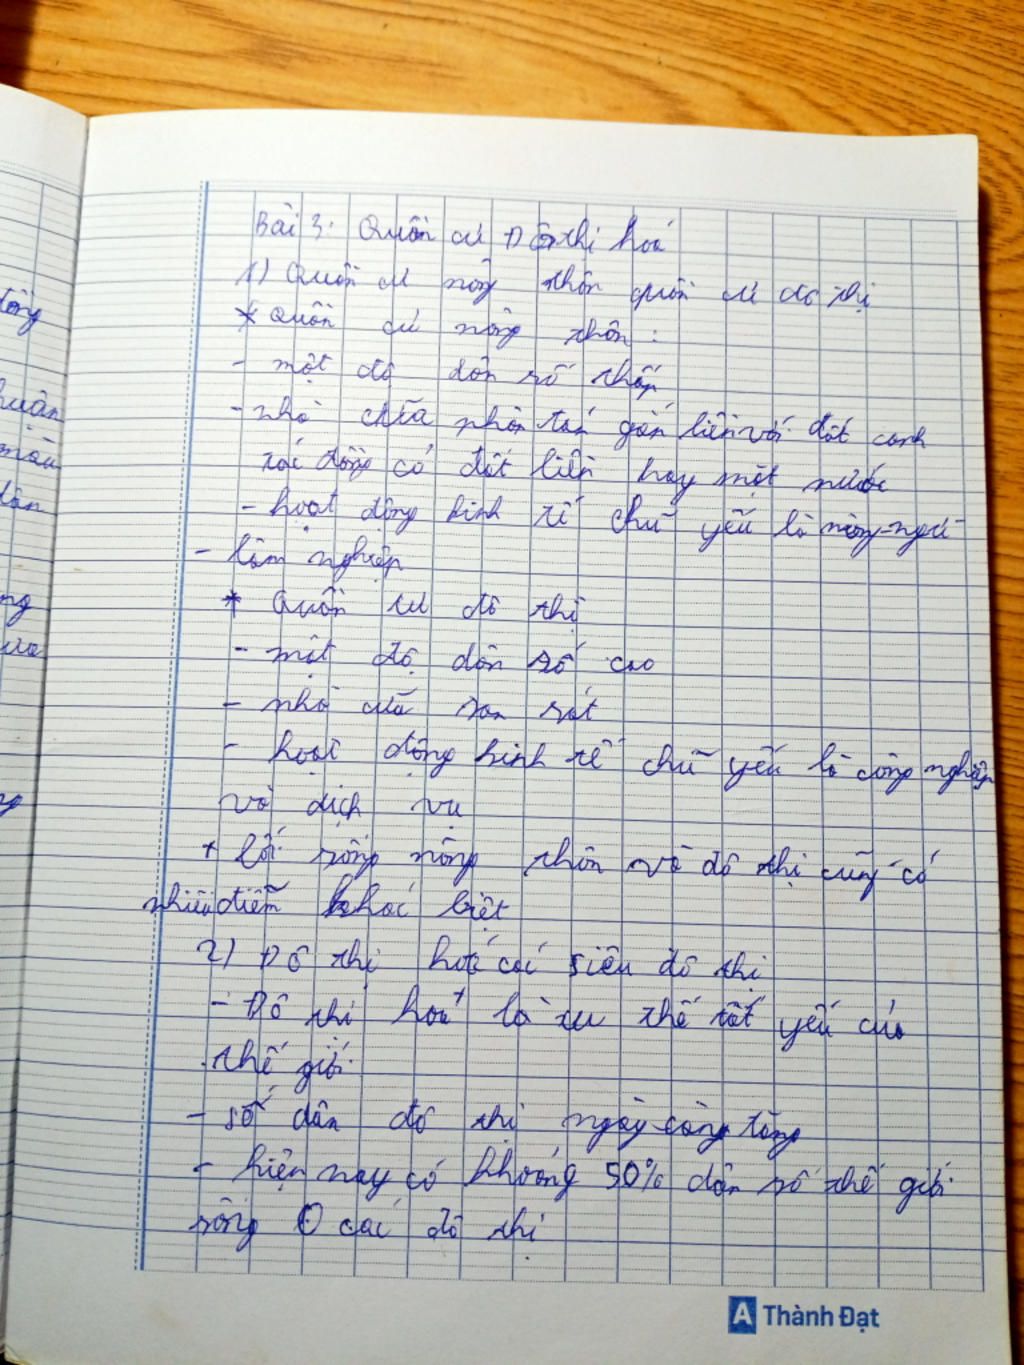 Bài 3: Quần cư Đô thị hoá
1) Quần cư nông thôn quần cư đô thị
* Quần cư nông thôn:
- một độ dân số thấp
- nhà cữa phân tán gắn liền với đất canh
tác đồng cỏ đất liền hay mặt nước
- hoạt động kinh tế chũ yếu là nông-ngư
- lâm nghiệp
* Quần cư đô thị
- mật độ dân số cao
- nhà cữa san sát
- hoạt động kinh tế chũ yếu là công nghiệp
và dịch vụ
+ lối sống nông thôn và đô thị cũng có
nhiều điễm khác biệt
2) Đô thị hoá các siêu đô thị
- Đô thị hoá là xu thế tất yếu của
thế giới
- số dân đô thị ngày càng tăng
- hiện nay có khoảng 50% dân số thế giới
sống Ở các đô thị
A Thành Đạt
ông
huận
màu
dân
ng